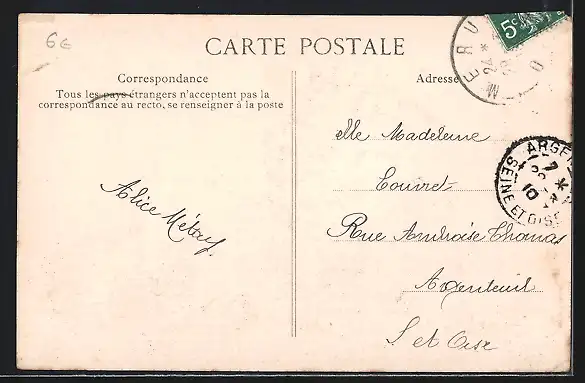 6€
CARTE POSTALE
Correspondance
Tous les pays étrangers n'acceptent pas la
correspondance au recto, se renseigner à la poste
Alice Métay
Adresse
elle Madeleine
Couvret
Rue Ambroise Thomas
Argenteuil
S et Oise
5c
MERU
24 *
O
ARGENT
7 *
10
SEINE ET OISE